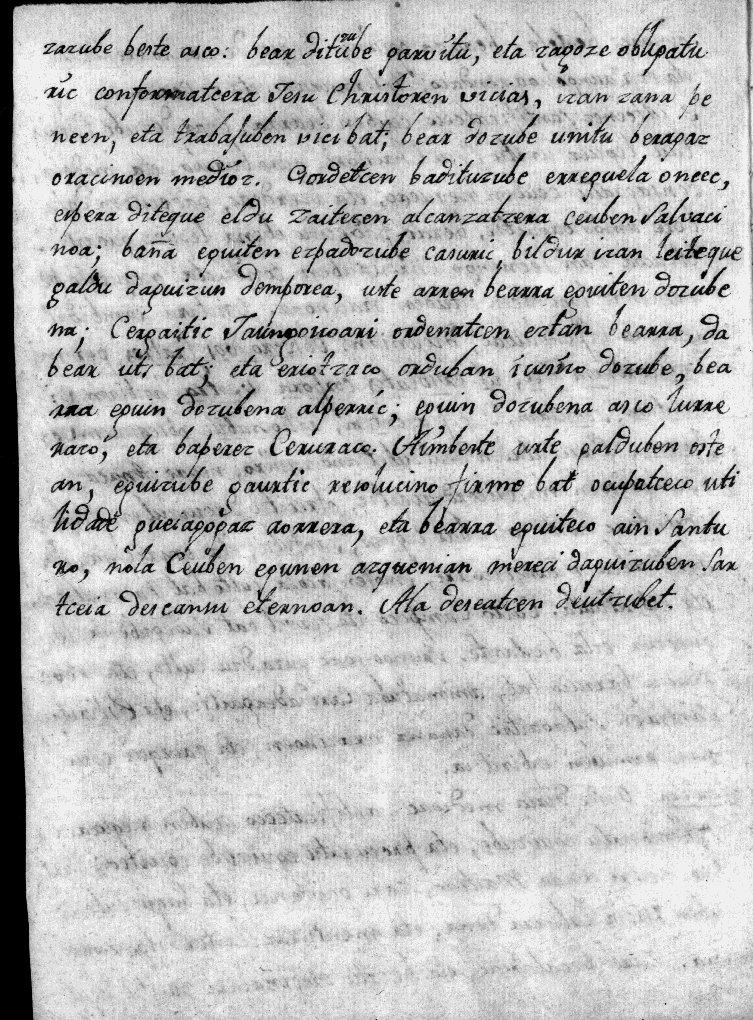 zarube beste asco: bear dituzube parvitu, eta zagoze obligatu
ric conformatcera Jesu Christoren viciaz, izan zana pe
neen, eta trabajuben vici bat; bear dozube unitu beragaz
oracinoen medioz. Gordetcen badituzube erreguela oneec,
espera diteque eldu zaitecen alcanzatzera ceuben Salvaci
noa; baña eguiten ezpadozube casuric, bildur izan leiteque
galdu daguizun demporea, uste arren bearra eguiten dozube
na; Cergaitic Jaungoicoari ordenatcen eztan bearra, da
bear uts bat; eta eriotzaco orduban icusico dozube, bea
rra eguin dozubena alperric; eguin dozubena asco lurre
raco, eta baperez Ceruraco. Aimberte urte galduben oste
an, eguizube gaurtic resolucino firme bat ocupatceco uti
lidade gueiagogaz aorrera, eta bearra eguiteco ain Santu
ro, nola Ceuben egunen azquenian mereci daguizuben sar
tceia descansu eternoan. Ala deseatcen deutzubet.